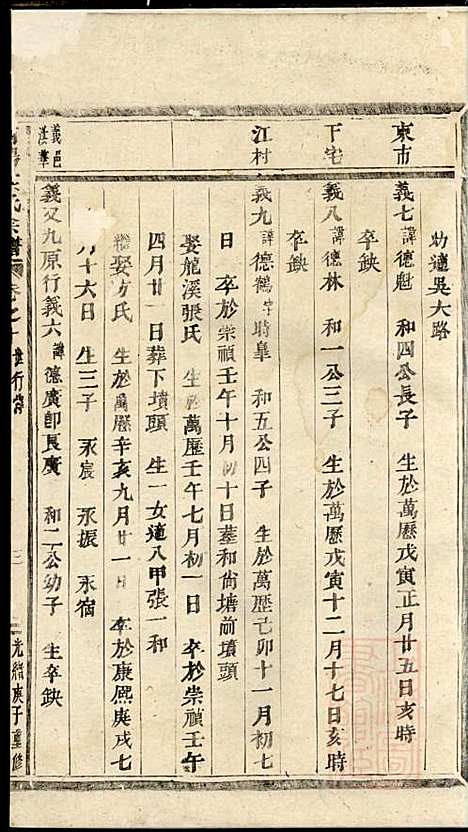 幼適吳大路
東市
義七諱德魁 和四公長子 生於萬歷戊寅正月廿五日亥時
卒缺
下宅
義八諱德林 和一公三子 生於萬歷戊寅十二月十七日亥時
卒缺
江村
義九諱德鶴字時皐 和五公四子 生於萬歷己卯十一月初七
日 卒於崇禎壬午十月初十日塟和尙塘前墳頭
娶龍溪張氏 生於萬歷壬午七月初一日 卒於崇禎壬午
四月廿一日葬下墳頭 生一女適八甲張一和
繼娶方氏 生於萬歷辛亥九月廿一日 卒於康熙庚戌七
月十六日 生三子 永宸 永振 永宿
義邑
義又九原行義六諱德廣卽良廣 和二公幼子 生卒缺
氏宗譜 卷之 行 三 光緒庚子重修